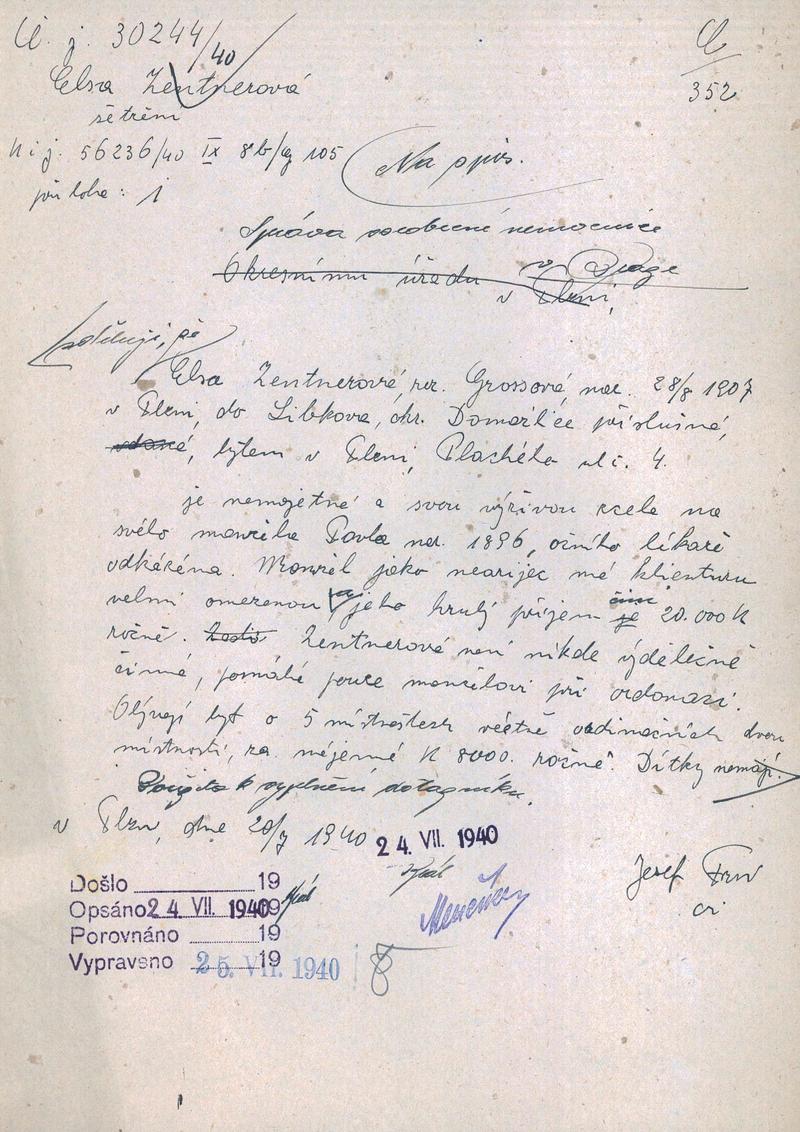 Č. j. 30244/40
Č
352
Elsa Zentnerová
šetření
K č. j. 56236/40 IX 8b/ 105
Na spis.
příloha: 1
Správa všeobecné nemocnice
v Praze
Okresnímu úřadu
v Plzni,
Sděluji, že
Elsa Zentnerová, roz. Grossová, nar. 28/8 1907
v Plzni, do Libkova, okr. Domažlice příslušná,
vdaná, bytem v Plzni, Plachého ul. č. 4.
je nemajetná a svou výživou zcela na
svého manžela Pavla nar. 1896, očního lékaře
odkázána. Manžel jako nearijec má klienturu
velmi omezenou a jeho hrubý příjem je činí 20.000 K
ročně. Zentnerová není nikde výdělečně
činná, pomáhá pouze manželovi při ordonaci.
Obývají byt o 5 místnostech včetně ordinačních dvou
místností, za nájemné K 8000. ročně. Dítky nemají.
k vyplnění dotazníku.
v Plzni, dne 20/7 1940
24. VII. 1940
Josef
Došlo 19
Opsáno 24. VII. 1940 19
Porovnáno 19
Vypraveno 25. VII. 1940 19